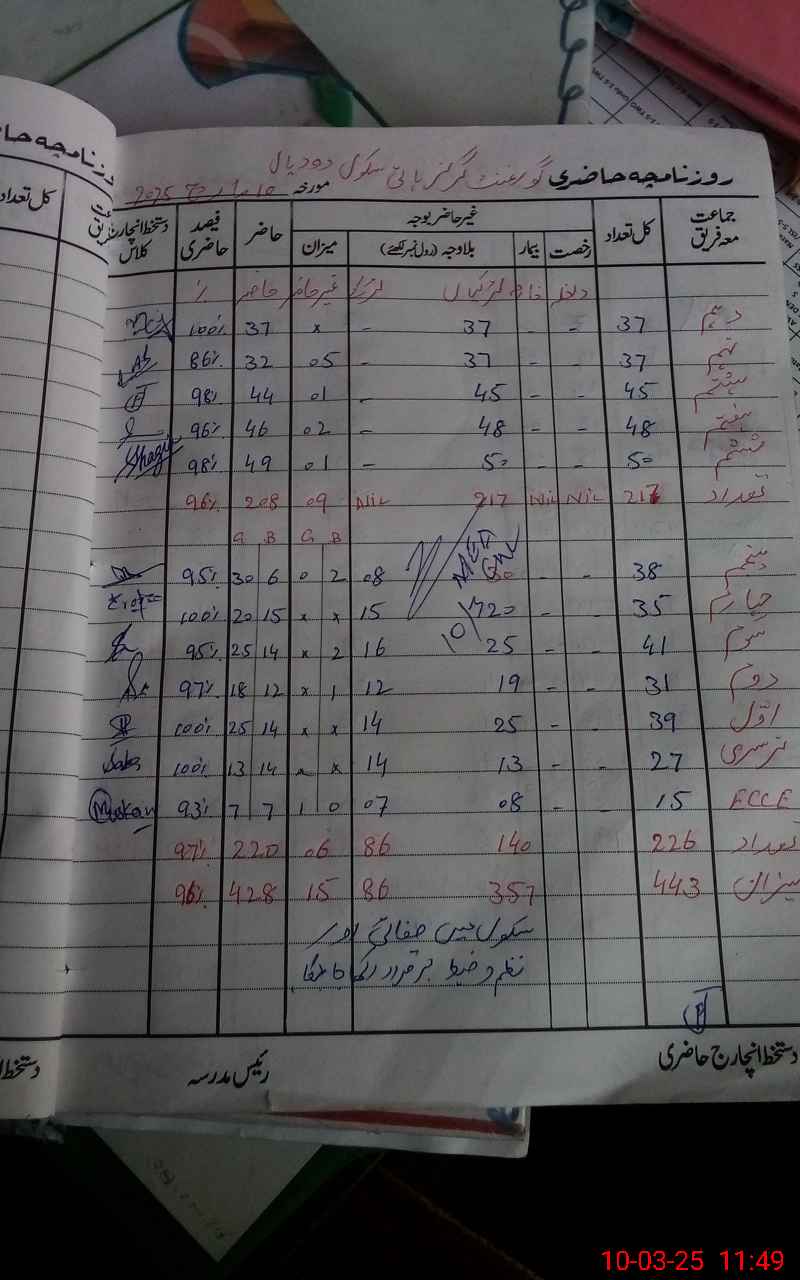 روزنامچہ حاضری گورنمنٹ گرلز ہائی سکول دودیال مورخہ 10 مارچ 2025
جماعت معہ فریق کل تعداد غیر حاضر بوجہ حاضر فیصد حاضری دستخط انچارج کلاس
رخصت بیمار بلاوجہ (رول نمبر لکھئے) میزان
داخلہ خارجہ لڑکیاں لڑکے غیر حاضر حاضر ٪
دہم 37 - - 37 - × 37 100%
نہم 37 - - 37 - 05 32 86%
ہشتم 45 - - 45 - 01 44 98%
ہفتم 48 - - 48 - 02 46 96%
ششم 50 - - 50 - 01 49 98% Shagu
تعداد 217 Nil Nil 217 Nil 09 208 96%
G B G B
MEA
پنجم 38 - - 30 08 2 0 6 30 95%
چہارم 35 - - 20 15 × × 15 20 100%
سوم 41 - - 25 16 2 × 14 25 95%
دوم 31 - - 19 12 1 × 12 18 97%
اوّل 39 - - 25 14 × × 14 25 100%
نرسری 27 - - 13 14 × × 14 13 100%
ECCE 15 - - 08 07 0 1 7 7 93% Muskan
تعداد 226 140 86 06 220 97%
میزان 443 357 86 15 428 96%
سکول میں صفائی اور
نظم و ضبط برقرار رکھا جائیگا
دستخط انچارج حاضری رئیس مدرسہ
روزنامچہ حا
کل تعداد
دستخط ا
10-03-25 11:49